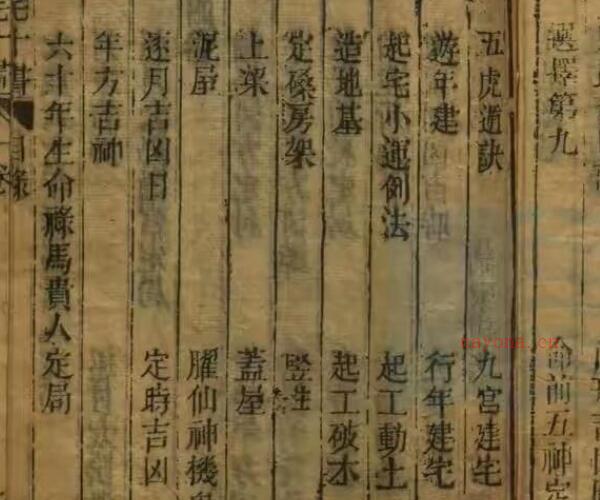 選擇第九　命前五神定
五虎遁訣　九宮建宅
遊年建　行年建宅
起宅小運例法　起工動土
造地基　起工破木
定磉房架　竪
上梁　蓋屋
泥屋　臞仙神機
逐月吉凶日　定時吉凶
年方吉神
六十年生命祿馬貴人定局
宅十書　目錄